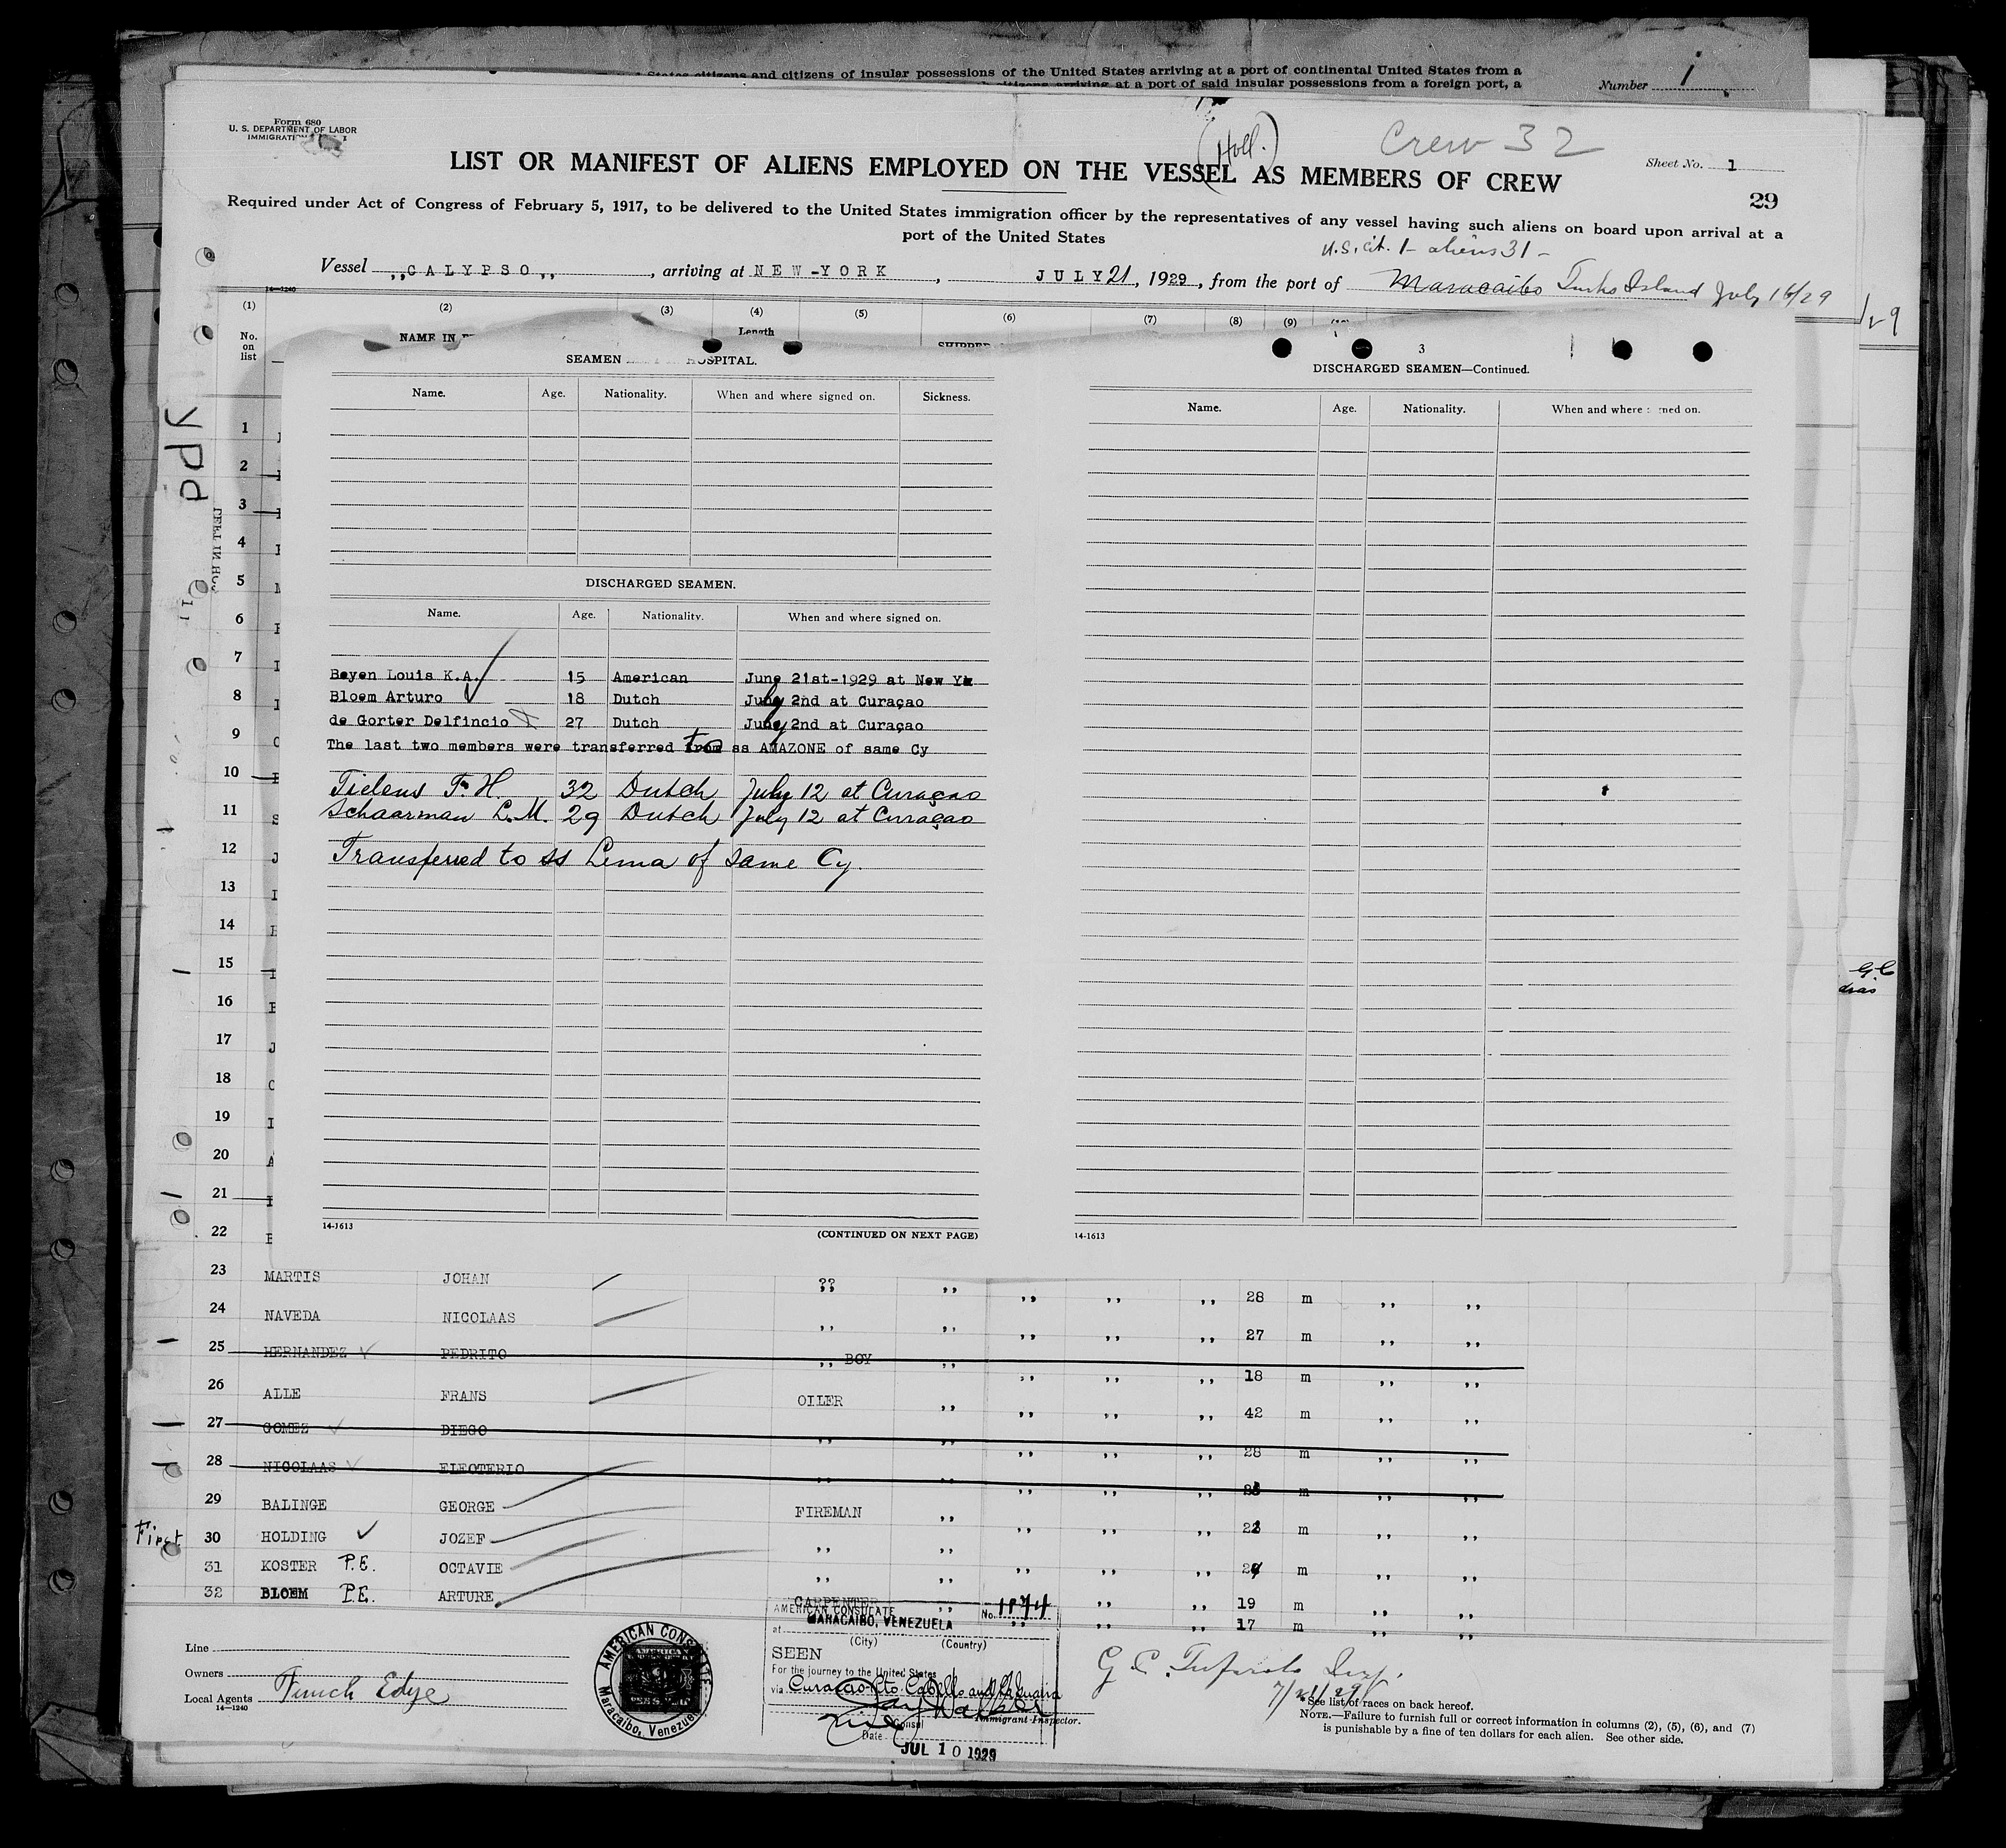 States citizens and citizens of insular possessions of the United States arriving at a port of continental United States from a
citizens arriving at a port of said insular possessions from a foreign port, a
Number 1
Form 680
U. S. DEPARTMENT OF LABOR
(Holl.)
Crew 32
LIST OR MANIFEST OF ALIENS EMPLOYED ON THE VESSEL AS MEMBERS OF CREW
Sheet No. 1
29
Required under Act of Congress of February 5, 1917, to be delivered to the United States immigration officer by the representatives of any vessel having such aliens on board upon arrival at a
port of the United States
U.S. cit. 1 - aliens 31 -
Vessel ,,CALYPSO,, , arriving at NEW-YORK , JULY 21, 1929, from the port of Maracaibo Turks Island July 16/29
14—1240
(1) (2) (3) (4) (5) (6) (7) (8) (9)
No. on list
NAME IN
Length
SHIPPED
SEAMEN HOSPITAL.
Name. Age. Nationality. When and where signed on. Sickness.
DISCHARGED SEAMEN.
Name. Age. Nationality. When and where signed on.
Beyen Louis K.A. 15 American June 21st-1929 at New Yk
Bloem Arturo 18 Dutch July 2nd at Curaçao
de Gorter Delfincio 27 Dutch July 2nd at Curaçao
The last two members were transferred to ss AMAZONE of same Cy
Tielens F. H. 32 Dutch July 12 at Curaçao
Schaarman L.M. 29 Dutch July 12 at Curaçao
Transferred to ss Lema of same Cy.
14-1613
(CONTINUED ON NEXT PAGE)
3
DISCHARGED SEAMEN—Continued.
Name. Age. Nationality. When and where signed on.
14-1613
1
2
3
4
5
6
7
8
9
10
11
12
13
14
15
16
17
18
19
20
21
22
23 MARTIS JOHAN ,, ,, ,, ,, ,, 28 m ,, ,,
24 NAVEDA NICOLAAS ,, ,, ,, ,, ,, 27 m ,, ,,
25 HERNANDEZ PEDRITO ,, BOY ,, ,, ,, ,, 18 m ,, ,,
26 ALLE FRANS OILER ,, ,, ,, ,, 42 m ,, ,,
27 GOMEZ DIEGO ,, ,, ,, ,, ,, 28 m ,, ,,
28 NICOLAAS ELEOTERIO ,, ,, ,, ,, ,, m ,, ,,
29 BALINGE GEORGE FIREMAN ,, ,, ,, ,, m ,, ,,
First 30 HOLDING JOZEF ,, ,, ,, ,, ,, m ,, ,,
31 KOSTER P.E. OCTAVIE ,, ,, ,, ,, ,, 19 m ,, ,,
32 BLOEM P.E. ARTURE CARPENTER ,, ,, ,, ,, 17 m ,, ,,
Line
Owners
Local Agents Funch Edye
14—1240
AMERICAN CONSULATE
Maracaibo, Venezuela
AMERICAN CONSULATE No. 1174
at MARACAIBO, VENEZUELA
(City) (Country)
SEEN
For the journey to the United States
via Curacao-Pto Cabello and La Guaira
Consul
Immigrant Inspector.
Date
JUL 10 1929
7/21/29
*See list of races on back hereof.
NOTE.—Failure to furnish full or correct information in columns (2), (5), (6), and (7)
is punishable by a fine of ten dollars for each alien. See other side.